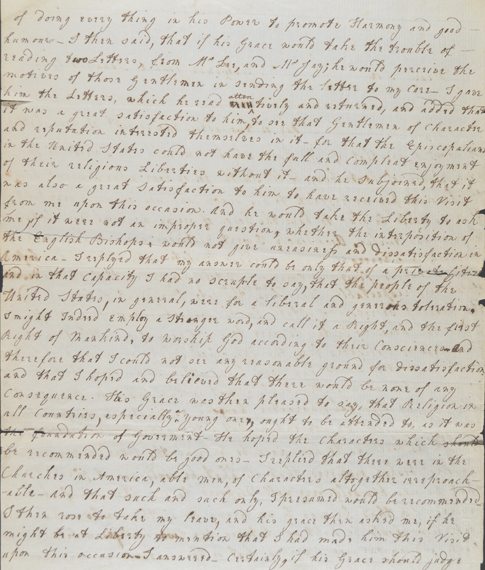 of doing every thing in his Power to promote Harmony and good
humour – I then said, that if his Grace would take the trouble of
reading two Letters, from Mr Lee, and Mr Jay; he would perceive the
motives of those Gentlemen in sending the letter to my care – I gave
him the Letters, which he read attentively and returned, and added that
it was a great satisfaction to him, to see that Gentlemen of Character
and reputation interested themselves in it – for that the Episcopalians
in the United States could not have the full and Compleat enjoyment
of their religious Liberties without it – and he subjoined, that it
was also a great Satisfaction to him to have received this Visit
from me upon this occasion. And he would take the Liberty to ask
me, if it were not an improper question, whether the interposition of
the English Bishops, would not give uneasiness and dissatisfaction in
America – I replyed that my answer could be only that of a private Citizen
and in that Capacity I had no scruple to say, that the people of the
United States, in general, were for a liberal and generous toleration.
I might Indeed employ a Stronger word, and call it a Right, and the first
Right of Mankind, to worship God according to their Consciences – and
therefore that I could not see any reasonable ground for dissatisfaction
and that I hoped and believed that there would be none of any
Consequence. His Grace was then pleased to say, that Religion in
all Countries, especially young ones, ought to be attended to, as it was
the foundation of Goverment – He hoped the Characters which should
be recommended would be good ones – I replied that there were in the
Churches in America, able men, of Characters altogether irreproach-
-able – And that such and such only, I presumed would be recommended.
I then rose to take my leave, and his grace then asked me, if he
might be at Liberty to mention that I had made him this Visit
upon this occasion – I answered – Certainly, if his Grace should judge